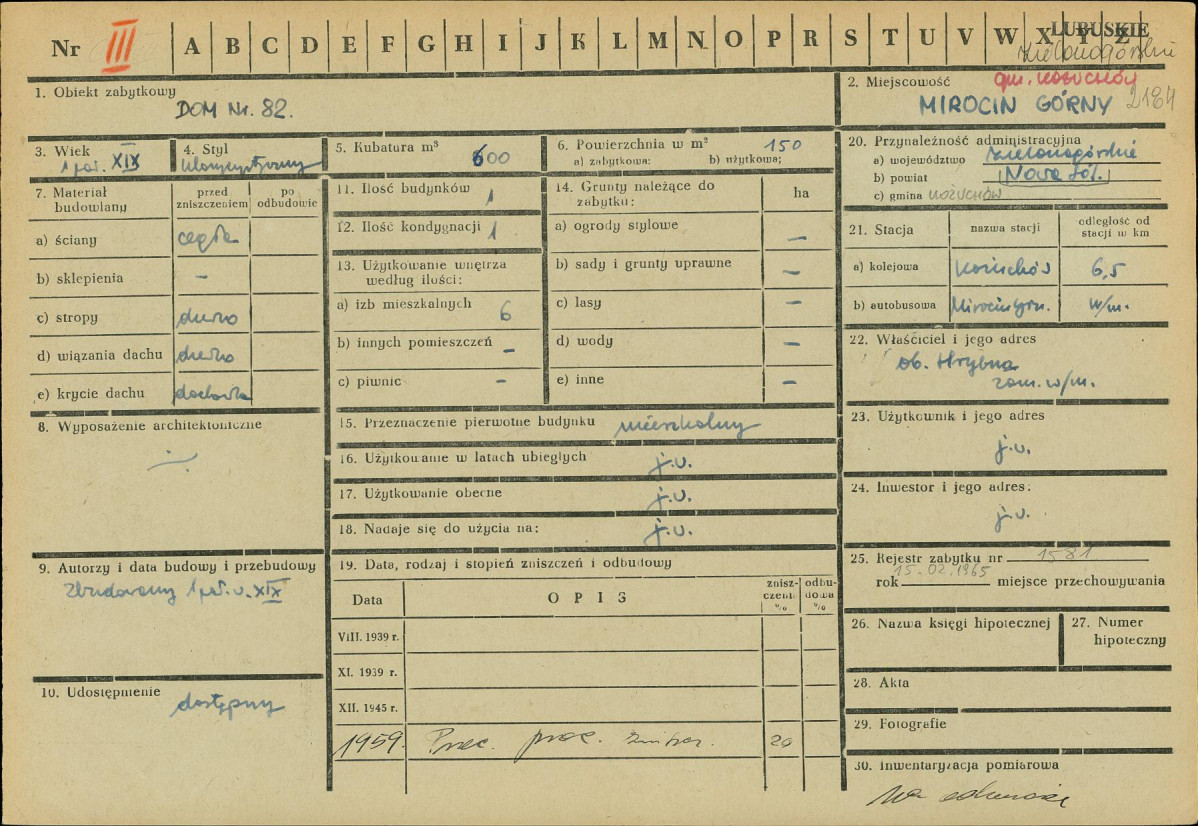 Nr III A B C D E F G H I J K L M N O P R S T U V W X Y Z LUBUSKIE
zielonogórskie
1. Obiekt zabytkowy
DOM Nr. 82.
2. Miejscowość gm. KOŻUCHÓW
MIROCIN GÓRNY 2184
3. Wiek
1 poł. XIX
4. Styl
klasycystyczny
5. Kubatura m³
600
6. Powierzchnia w m² 150
a) zabytkowa: b) użytkowa;
7. Materiał budowlany
przed zniszczeniem
po odbudowie
a) ściany cegła
b) sklepienia –
c) stropy drewno
d) wiązania dachu drewno
e) krycie dachu dachówka
8. Wyposażenie architektoniczne
9. Autorzy i data budowy i przebudowy
Zbudowany 1 poł. w. XIX
10. Udostępnienie
dostępny
11. Ilość budynków 1
12. Ilość kondygnacji 1
13. Użytkowanie wnętrza
według ilości:
a) izb mieszkalnych 6
b) innych pomieszczeń –
c) piwnic –
14. Grunty należące do
zabytku: ha
a) ogrody stylowe –
b) sady i grunty uprawne –
c) lasy –
d) wody –
e) inne –
15. Przeznaczenie pierwotne budynku mieszkalny
16. Użytkowanie w latach ubiegłych j.w.
17. Użytkowanie obecne j.w.
18. Nadaje się do użycia na: j.w.
19. Data, rodzaj i stopień zniszczeń i odbudowy
Data OPIS znisz-czenie % odbu-dowa %
VIII. 1939 r.
XI. 1939 r.
XII. 1945 r.
1959. 20
20. Przynależność administracyjna
a) województwo zielonogórskie
b) powiat Nowa Sól.
c) gmina KOŻUCHÓW
21. Stacja nazwa stacji odległość od stacji w km
a) kolejowa Kożuchów 6,5
b) autobusowa Mirocin Grn. w/m.
22. Właściciel i jego adres
ob. Hrybna
zam. w/m.
23. Użytkownik i jego adres
j.w.
24. Inwestor i jego adres:
j.w.
25. Rejestr zabytku nr 1581
rok 15.02.1965 miejsce przechowywania
26. Nazwa księgi hipotecznej
27. Numer hipoteczny
28. Akta
29. Fotografie
30. Inwentaryzacja pomiarowa